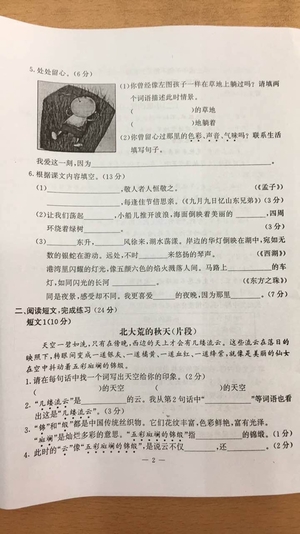 5.处处留心。(6分)
(1)你曾经像左图孩子一样在草地上躺过吗?请填两
个词语描述此时情景。
(                    )的草地
(                    )地躺着
(2)你曾留心过那里的色彩、声音、气味吗?联系生活
填写句子。
我爱这一刻,因为____________________________。
6.根据课文内容填空。(13分)
(1)______________,敬人者人恒敬之。 《孟子》
______________,每逢佳节倍思亲。《九月九日忆山东兄弟》(3分)
(2)让我们荡起________,小船儿推开波浪,海面倒映着美丽的________,四周
环绕着绿树________。 (3分)
(3)________东升,________风徐来,湖水荡漾。岸边的华灯倒映在湖中,宛如无
数的银蛇在游动。远处,不时飘来悠扬的琴声。 《西湖》
港湾里闪耀的灯光,像五颜六色的焰火溅落人间。马路上________的车
灯,如同闪光的长河________。 《东方之珠》
同是夜景,感受却不同。我更喜爱________的夜晚,因为那里________。(7分)
二、阅读短文,完成练习(24分)
短文1(10分)
北大荒的秋天(片段)
天空一碧如洗,只有在傍晚,西边的天上才会有几缕流云。这些流云在落日的
映照下,转眼间变成一道银灰、一道橘黄、一道血红、一道绛紫,就像是美丽的仙女
在空中抖动着五彩斑斓的锦缎。
1.请在每句话中找一个词写出天空给你的印象。(2分)
(              )的天空 (              )的天空
2.“几缕流云”是________的云。我从第2句话中“________”等词语也看
出这是“几缕流云”。(3分)
3.“锦”和“缎”都是中国传统丝织物。它们花纹丰富,色彩鲜艳,富有光泽。
“斑斓”是灿烂多彩的意思。“五彩斑斓的锦缎”指____________的锦缎。(1分)
4.此时的“云”像“五彩斑斓的锦缎”,是说云不仅________,还________。(2分)
— 2 —